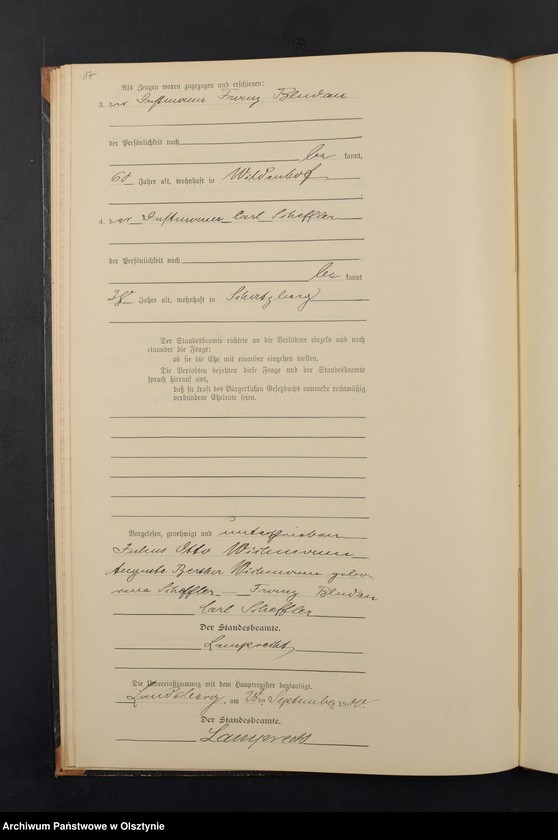 17
Als Zeugen waren zugezogen und erschienen:
3. der Instmann Franz Bludau
der Persönlichkeit nach
be kannt,
60 Jahre alt, wohnhaft in Wildenhof
4. der Instmann Carl Scheffler
der Persönlichkeit nach
be kannt
Jahre alt, wohnhaft in
Der Standesbeamte richtete an die Verlobten einzeln und nach
einander die Frage:
ob sie die Ehe mit einander eingehen wollen.
Die Verlobten bejahten diese Frage und der Standesbeamte
sprach hierauf aus,
daß sie kraft des Bürgerlichen Gesetzbuchs nunmehr rechtmäßig
verbundene Eheleute seien.
Vorgelesen, genehmigt und unterschrieben
Julius Otto Wichmann
Auguste Bertha Wichmann gebo-
rene Scheffler — Franz Bludau
Carl Scheffler
Der Standesbeamte.
Lamprecht
Die Uebereinstimmung mit dem Hauptregister beglaubigt.
Landsberg, am September 1900
Der Standesbeamte.
Lamprecht
Archiwum Państwowe w Olsztynie